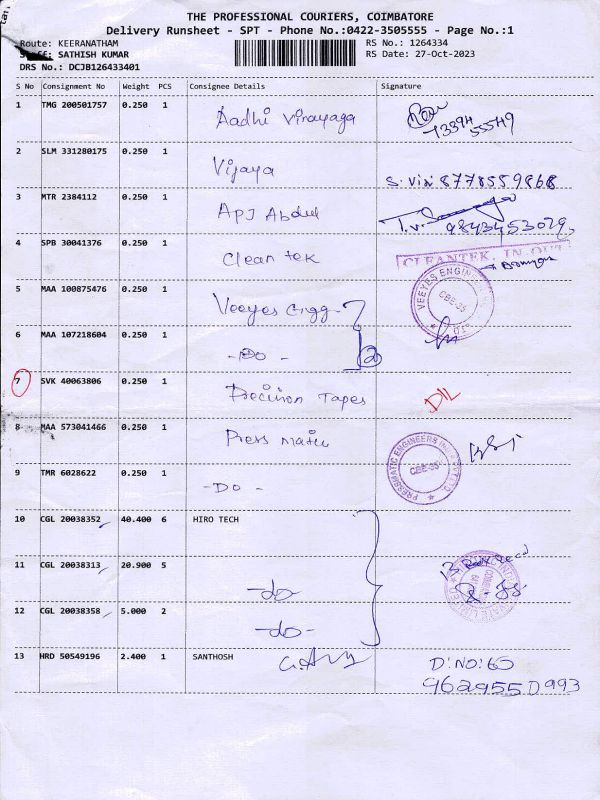 THE PROFESSIONAL COURIERS, COIMBATORE
Delivery Runsheet - SPT - Phone No.:0422-3505555 - Page No.:1
Route: KEERANATHAM RS No.: 1264334
Staff: SATHISH KUMAR RS Date: 27-Oct-2023
DRS No.: DCJB126433401
S No Consignment No Weight PCS Consignee Details Signature
1 TMG 200501757 0.250 1 Aadhi Vinayaga
2 SLM 331280175 0.250 1 Vijaya 8778559868
3 MTR 2384112 0.250 1 APJ Abdul
4 SPB 30041376 0.250 1 Clean tek CLEANTEK
5 MAA 100875476 0.250 1 Veeyes Engg VEEYES ENGINEE CBE-35
6 MAA 107218604 0.250 1 -Do -
7 SVK 40063806 0.250 1 Precision Tapes D/L
8 MAA 573041466 0.250 1 Press matic PRESSMATIC ENGINEERS CBE-35
9 TMR 6028622 0.250 1 -Do -
10 CGL 20038352 40.400 6 HIRO TECH
11 CGL 20038313 20.900 5 -do-
12 CGL 20038358 5.000 2 -do-
13 HRD 50549196 2.400 1 SANTHOSH D:NO:65
9629550993